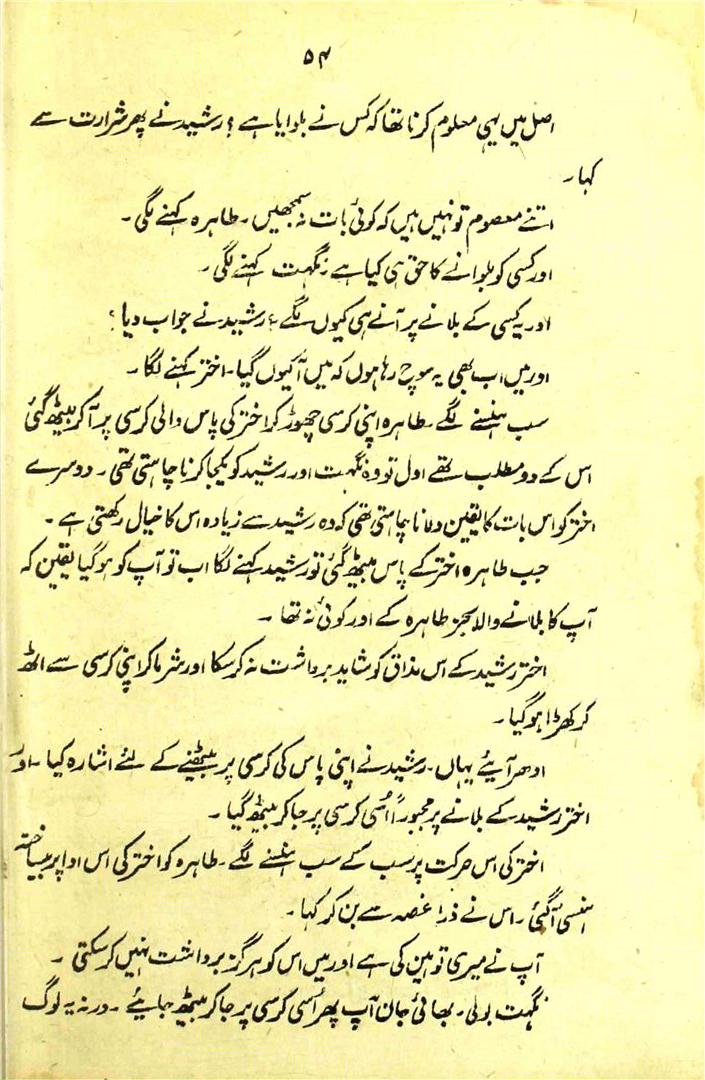 ۵۴
اصل میں یہی معلوم کرنا تھا کہ کس نے بلوایا ہے ؟ رشید نے پھر شرارت سے
کہا۔
اتنے معصوم تو نہیں ہیں کہ کوئی بات نہ سمجھیں۔ طاہرہ کہنے لگی۔
اور کسی کو بلوانے کا حق ہی کیا ہے ؟ نگہت کہنے لگی۔
اور یہ کسی کے بلانے پر آنے ہی کیوں لگے ؟ رشید نے جواب دیا ؟
اور میں اب بھی یہ سوچ رہا ہوں کہ میں آ کیوں گیا۔ اختر کہنے لگا۔
سب ہنسنے لگے۔ طاہرہ اپنی کرسی چھوڑ کر اختر کی پاس والی کرسی پر آ کر بیٹھ گئی
اس کے دو مطلب تھے اول تو وہ نگہت اور رشید کو یکجا کرنا چاہتی تھی۔ دوسرے
اختر کو اس بات کا یقین دلانا چاہتی تھی کہ وہ رشید سے زیادہ اس کا خیال رکھتی ہے۔
جب طاہرہ اختر کے پاس بیٹھ گئی تو رشید کہنے لگا اب تو آپ کو ہو گیا یقین کہ
آپ کا بلانے والا بجز طاہرہ کے اور کوئی نہ تھا۔
اختر رشید کے اس مذاق کو شاید برداشت نہ کر سکا اور شرما کر اپنی کرسی سے اٹھ
کر کھڑا ہو گیا۔
ادھر آیئے یہاں۔ رشید نے اپنی پاس کی کرسی پر بیٹھنے کے لئے اشارہ کیا۔ اور
اختر رشید کے بلانے پر مجبوراً اُسی کرسی پر جا کر بیٹھ گیا۔
اختر کی اس حرکت پر سب کے سب ہنسنے لگے۔ طاہرہ کو اختر کی اس ادا پر بیساختہ
ہنسی آ گئی۔ اس نے ذرا غصہ سے بن کر کہا۔
آپ نے میری توہین کی ہے اور میں اس کو ہرگز برداشت نہیں کر سکتی۔
نگہت بولی۔ بھائی جان آپ پھر اُسی کرسی پر جا کر بیٹھ جایئے۔ ورنہ یہ لوگ